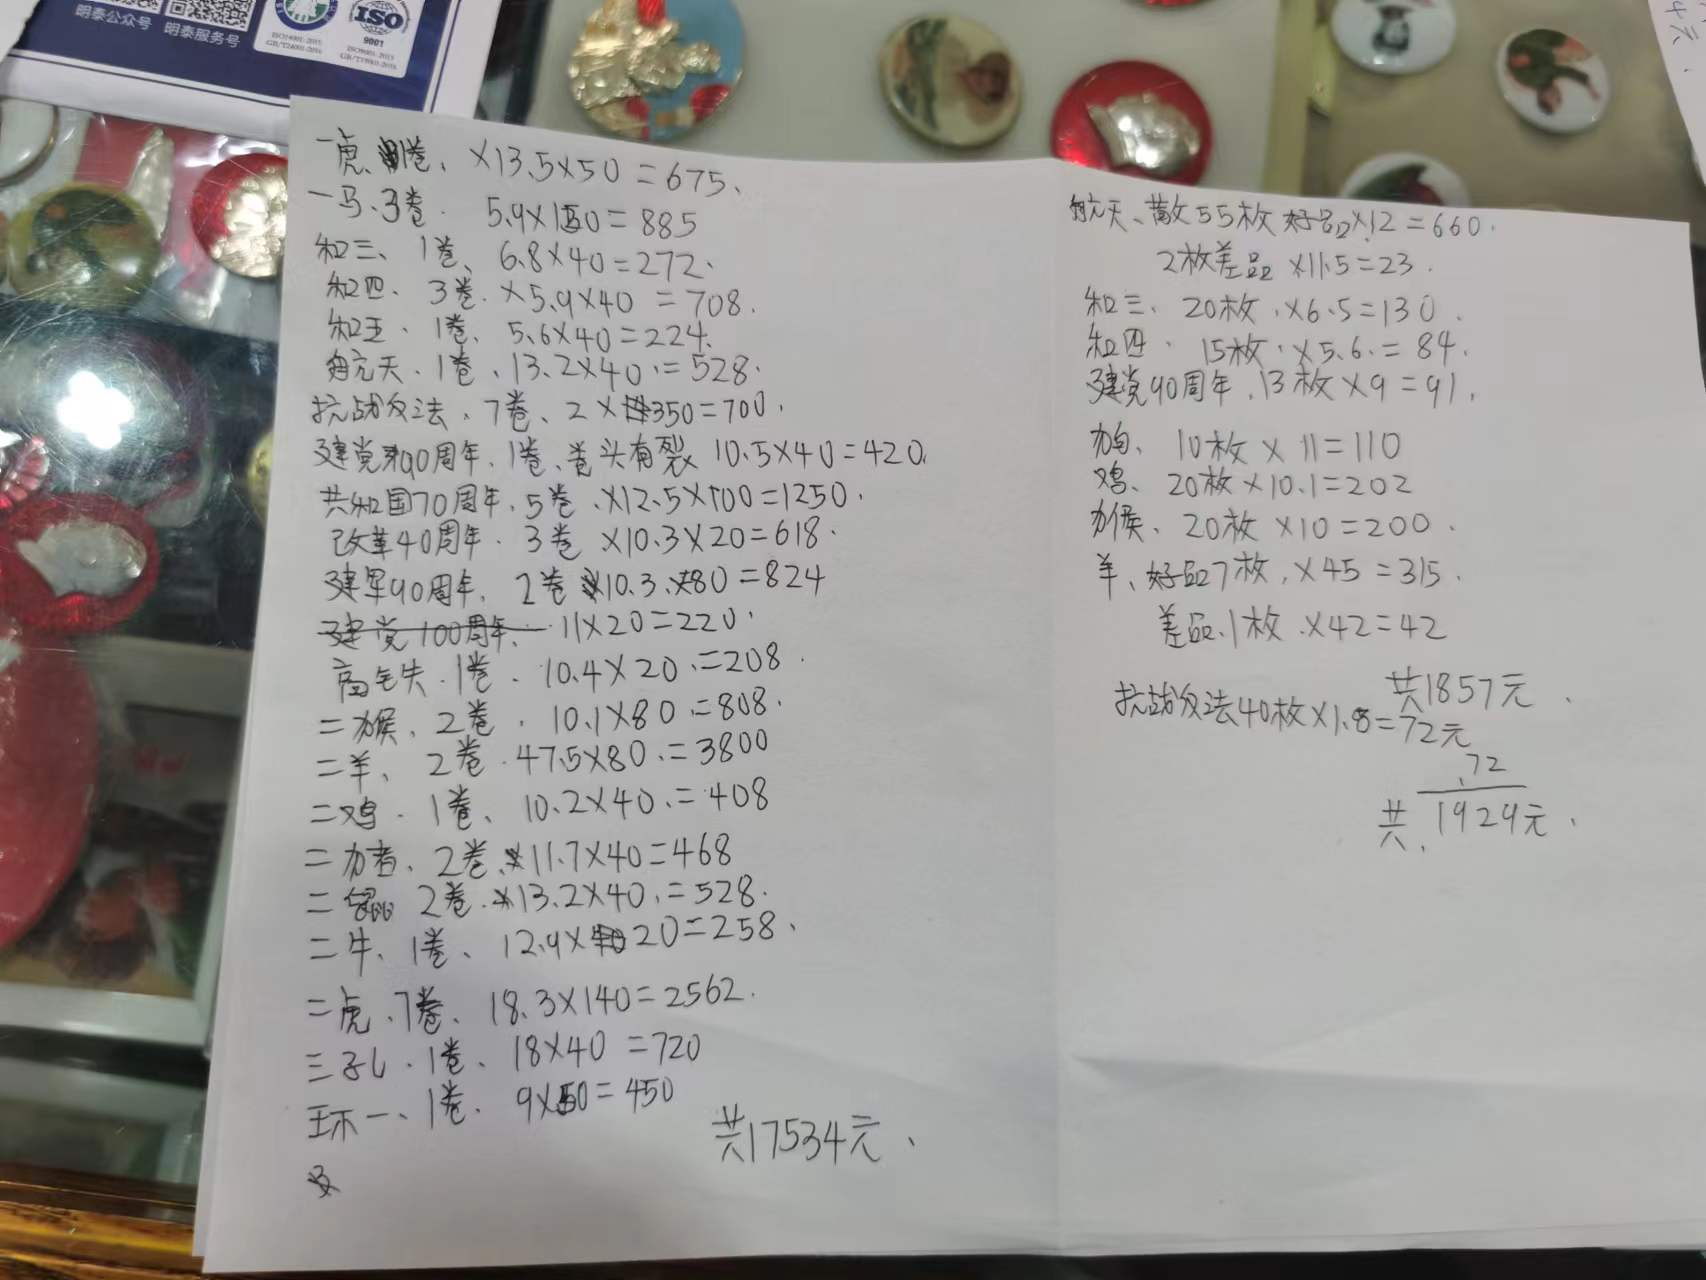 明泰公众号 明泰服务号
ISO
9001
一虎、1卷、×13.5×50=675、
一马、3卷. 5.9×150=885
和三、1卷、6.8×40=272、
和四、3卷.×5.9×40=708.
和五、1卷、5.6×40=224.
航天、1卷、13.2×40.=528.
抗战反法、7卷、2×350=700.
建党90周年、1卷、卷头有裂 10.5×40=420.
共和国70周年.5卷.×12.5×100=1250.
改革40周年.3卷×10.3×20=618.
建军90周年.2卷×10.3.×80=824
建党100周年. 11×20=220.
高铁.1卷. 10.4×20.=208.
二猴.2卷.10.1×80.=808.
二羊、2卷.47.5×80.=3800
二鸡.1卷、10.2×40.=408
二猪、2卷.×11.7×40=468
二鼠 2卷.×13.2×40.=528.
二牛、1卷、12.9×20=258、
二虎、7卷、18.3×140=2562.
三孔.1卷、18×40=720
环一、1卷.9×50=450
共17534元、
航天、散55枚好品×12=660.
2枚差品×11.5=23.
和三、20枚.×6.5=130.
和四.15枚.×5.6.=84.
建党90周年.13枚×9=91.
狗、10枚×11=110
鸡、20枚×10.1=202
猴、20枚×10=200.
羊、好品7枚.×45=315.
差品.1枚.×42=42
共1857元.
抗战反法40枚×1.8=72元
.72
共.1929元.